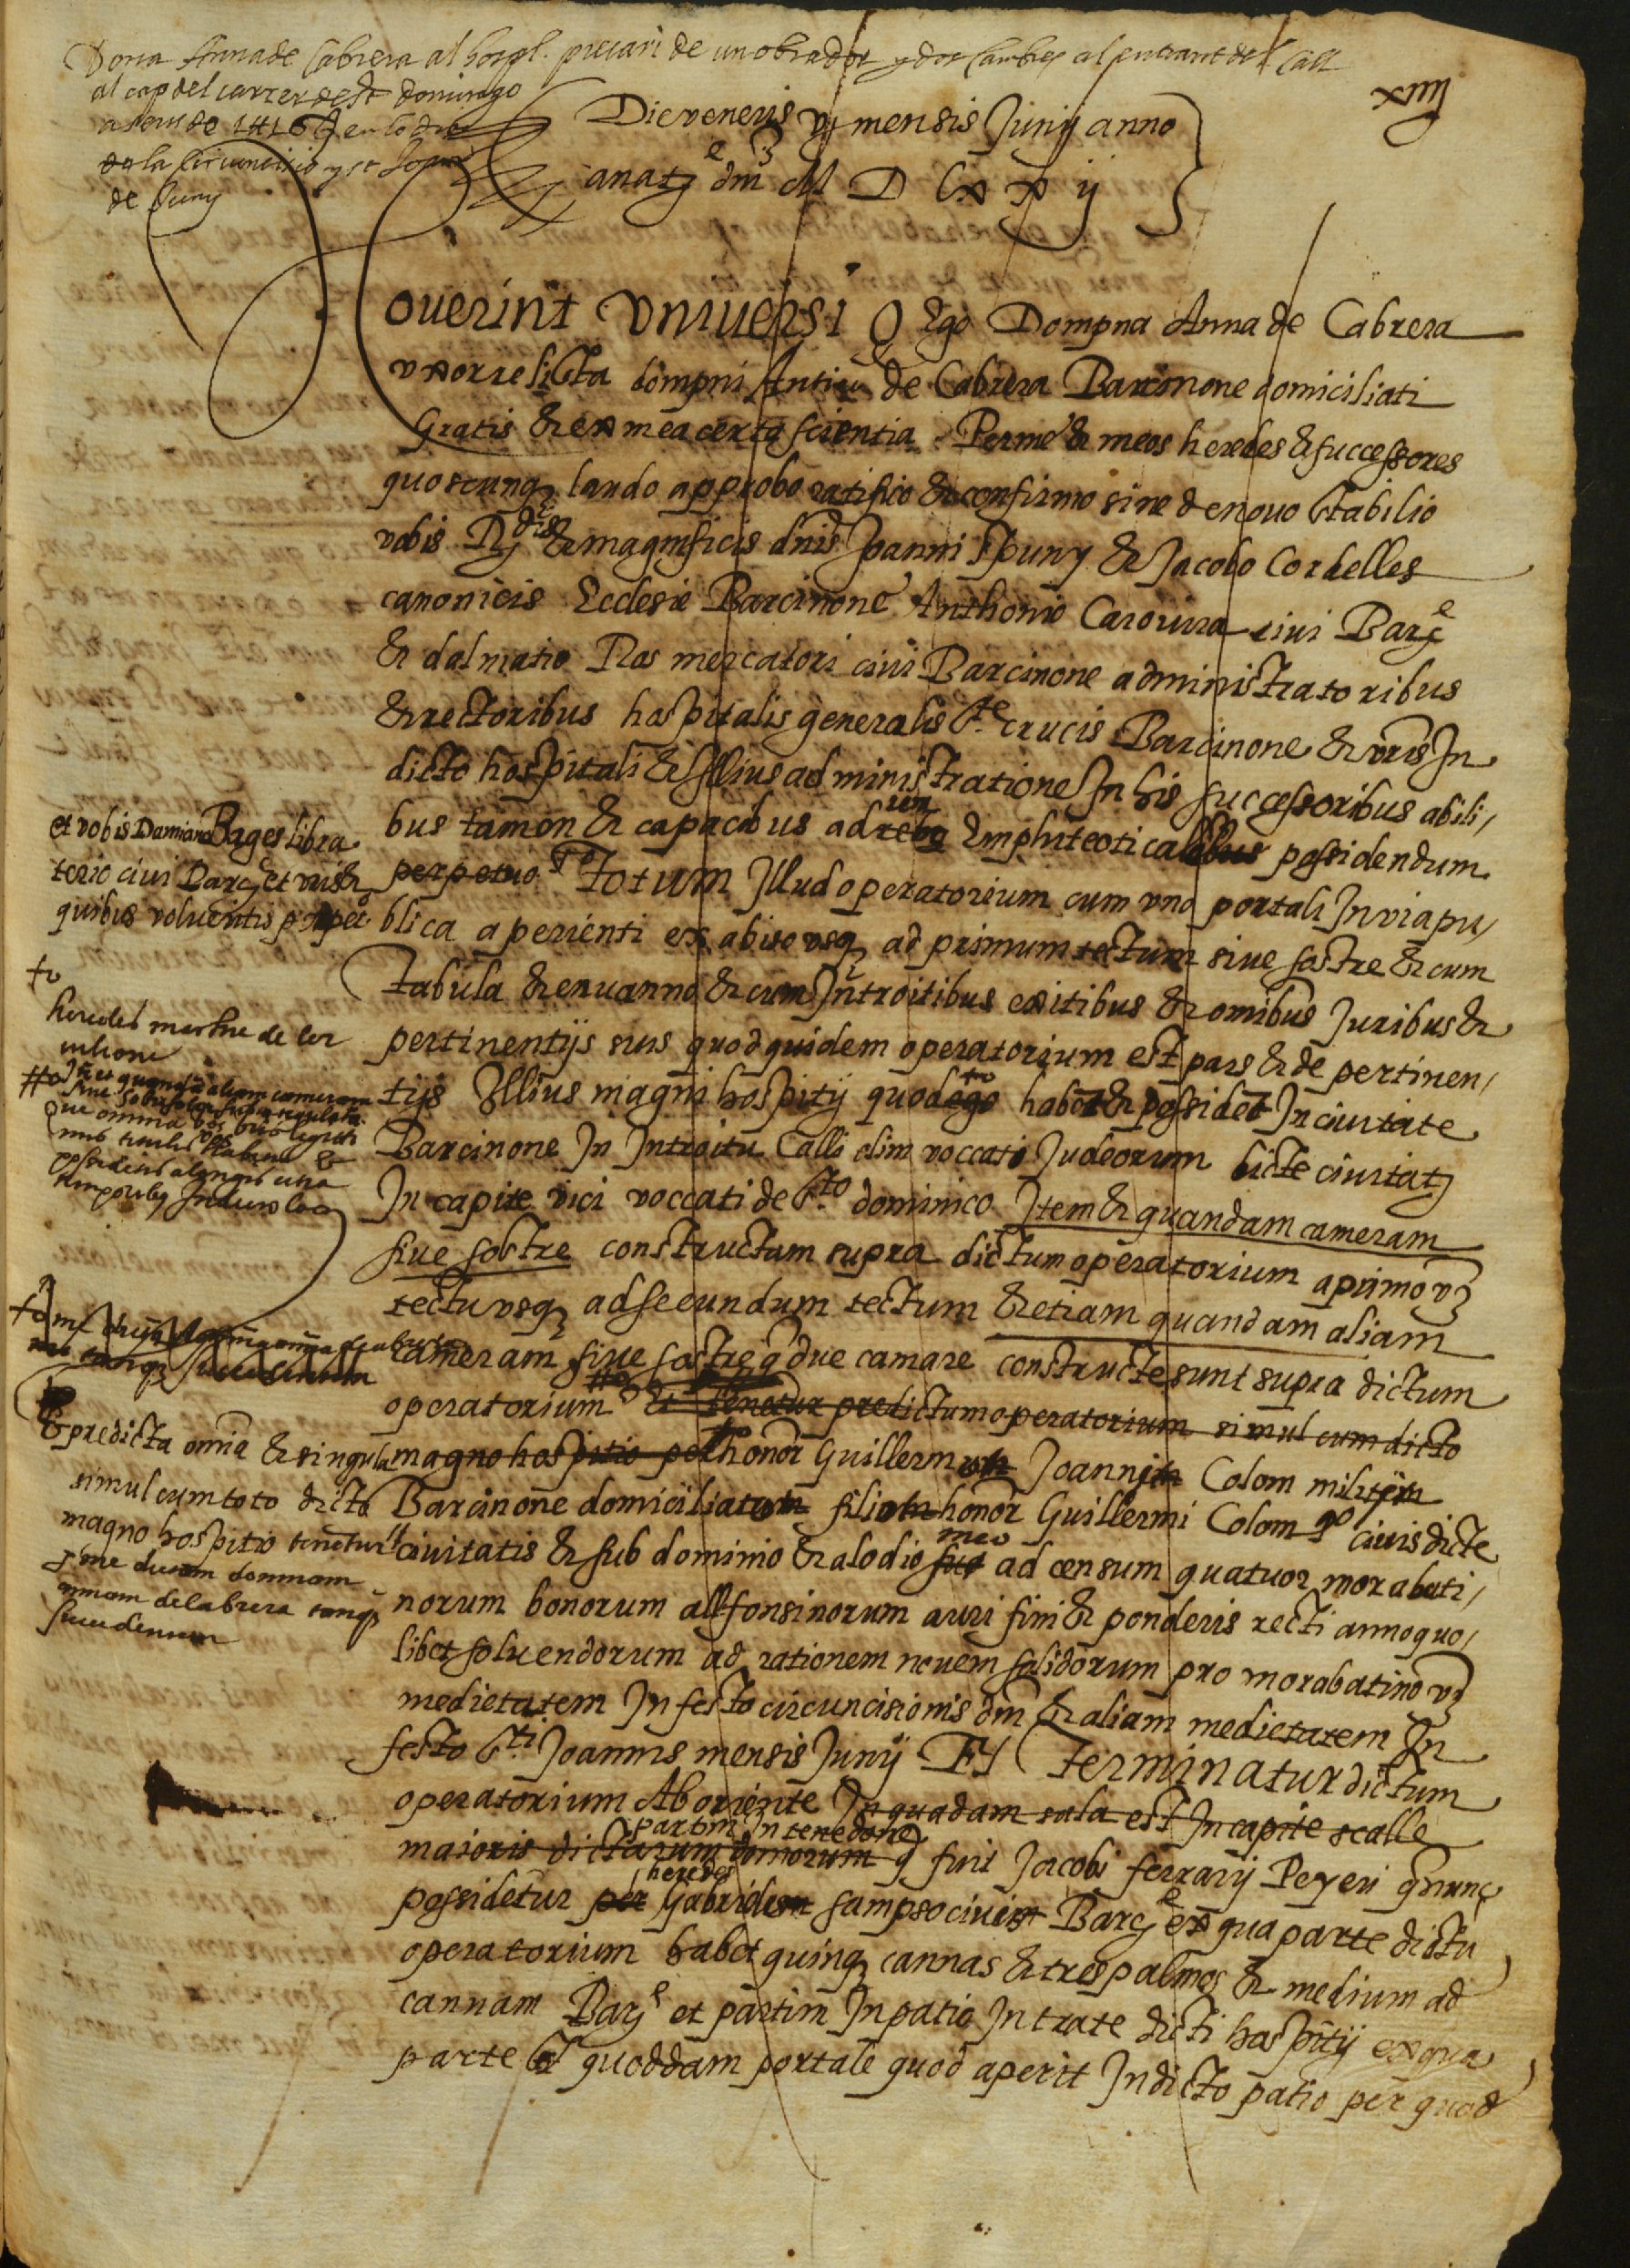 Dona Anna de Cabrera al hospl. precari de un obrador y dos cambres al entrant del Call
al cap del carrer de St domingo
de la Circumcisio y st Joan
de Juny
xiiij
Die veneris vj mensis Junij anno
a natj dni M D Lxxij
overint universi Q Ego Dompna Anna de Cabrera
uxor relicta dompni Antici de Cabrera Barcinone domiciliati
Gratis & ex mea certa scientia Per me & meos heredes & successores
quoscunq laudo approbo ratifico & confirmo sive de novo stabilio
vobis Rdis & magnificis dnis Joanni Spuny & Jacobo Cordelles
canonicis Ecclesie Barcinone Anthonio Carovira civi Barce
& dalmatio Ros mercatori civi Barcinone administratoribus
& rectoribus hospitalis generalis Ste crucis Barcinone & vris In
dicto hospitali & Illius administratione In his successoribus abili/
bus tamen & capacibus ad rem Emphiteoticalem possidendum
perpetuo Totum Illud operatorium cum uno portali In via pu/
blica aperienti ex abite usq ad primum tectum sive sostre & cum
tabula & envanno & cum Introitibus exitibus & omnibus Juribus &
pertinentijs suis quod quidem operatorium est pars & de pertinen/
tijs Illius magni hospitij quod ego habet & possidet In civitate
Barcinone In Introitu Calli olim voccati Judeorum dicte civitatj
In capite vici voccati de Sto dominico Item & quandam cameram
sive sostre constructam supra dictum operatorium a primo vz
tectu usq ad secundum tectum & etiam quandam aliam
cameram sive sostre q due camare constructe sunt supra dictum
operatorium & tenetur predictum operatorium simul cum dicto
magno hospitio per honor Guillermum Joannem Colom militem
Barcinone domiciliatum filium honor Guillermi Colom qo civis dicte
civitatis & sub dominio & alodio suo meo ad censum quatuor morabati/
norum bonorum alfonsinorum auri fini & ponderis recti anno quo/
libet solvendorum ad rationem novem solidorum pro morabatino vz
medietatem In festo circuncisionis dni & aliam medietatem In
festo Sti Joannis mensis Junij Et Terminatur dictum
operatorium Ab oriente In quadam sala est In capite scalle
partim In tenedone
maioris dictarum domorum q fuit Jacobi ferrarij Peyeri q nunc
heredes
possidetur per Gabrielem sampso civem Barce ex qua parte dictu
operatorium habet quinq cannas & tres palmos & medium ad
cannam Barce et partim In patio Intrate dicti hospitij ex qua
parte est quoddam portale quod aperit In dicto patio per quod
et vobis Damiano Bages libra
terio civi Barce et vris &
quibus volueritis perpetuo
simul cum toto dicto
magno hospitio tenetur
p me dictam domnam
annam de Cabrera tanq
succedentem
& predicta omnia & singula